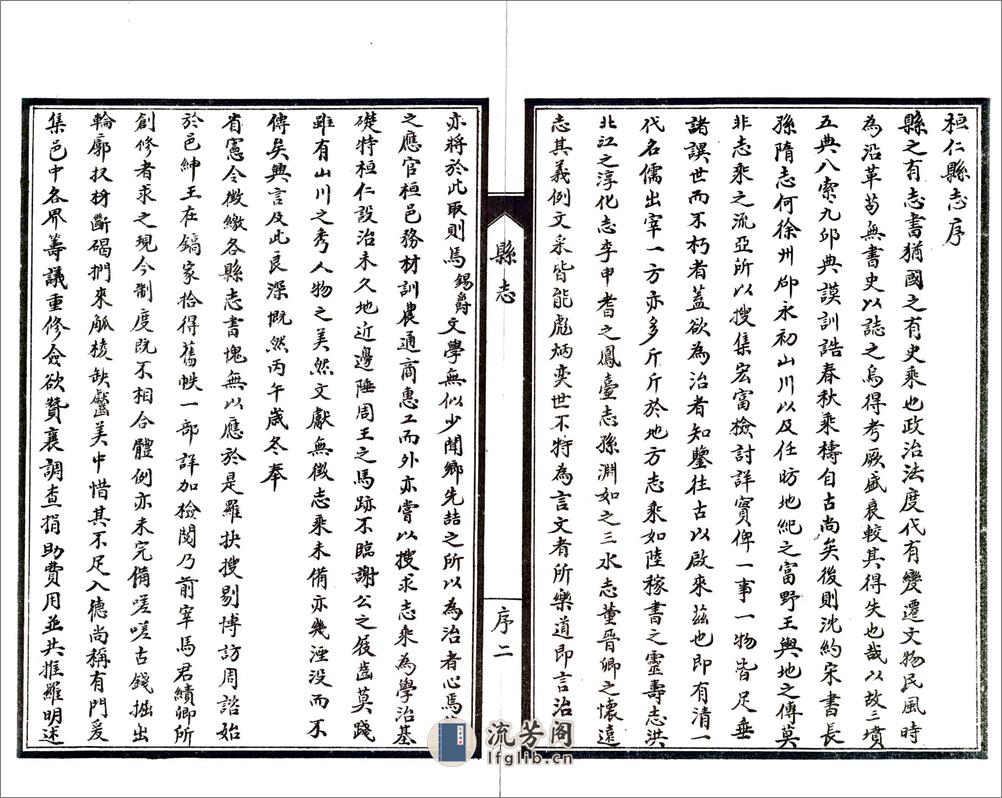 桓仁縣志序
縣之有志書猶國之有史乘也政治法度代有變遷文物民風時
為沿革苟無書史以誌之烏得考厥盛衰較其得失也哉以故三墳
五典八索九邱典謨訓誥春秋乘檮自古尚矣後則沈約宋書長
孫隋志何徐州郡永初山川以及任昉地紀之富野王輿地之傳莫
非志乘之流亞所以搜集宏富檢討詳實俾一事一物皆足垂
諸誤世而不朽者蓋欲為治者知鑒往古以啟來茲也即有清一
代名儒出宰一方亦多斤斤於地方志乘如陸稼書之靈壽志洪
北江之淳化志李申耆之鳳臺志孫淵如之三水志董晉卿之懷遠
志其義例文采皆能彪炳奕世不特為言文者所樂道即言治
縣志
序二
亦將於此取則焉錫爵文學無似少聞鄉先喆之所以為治者心焉
之應官桓邑務材訓農通商惠工而外亦嘗以搜求志乘為學治基
礎特桓仁設治未久地近邊陲周王之馬跡不臨謝公之屐齒莫踐
雖有山川之秀人物之美然文獻無徵志乘未備亦幾湮没而不
傳矣興言及此良深慨然丙午歲冬奉
省憲令徵繳各縣志書愧無以應於是羅抉搜剔博訪周諮始
於邑紳王在鎬家拾得舊帙一部詳加檢閱乃前宰馬君績卿所
創修者求之現今制度既不相合體例亦未完備嗟嗟古錢掘出
輪廓扠枒斷碣捫來觚棱缺齾美中惜其不足入德尚稱有門爰
集邑中各界籌議重修僉欲贊襄調查捐助費用並共推羅明述
流芳阁
lfglib.cn